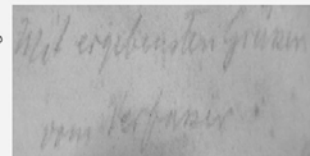 Mit ergebensten Grüssen
vom Verfasser